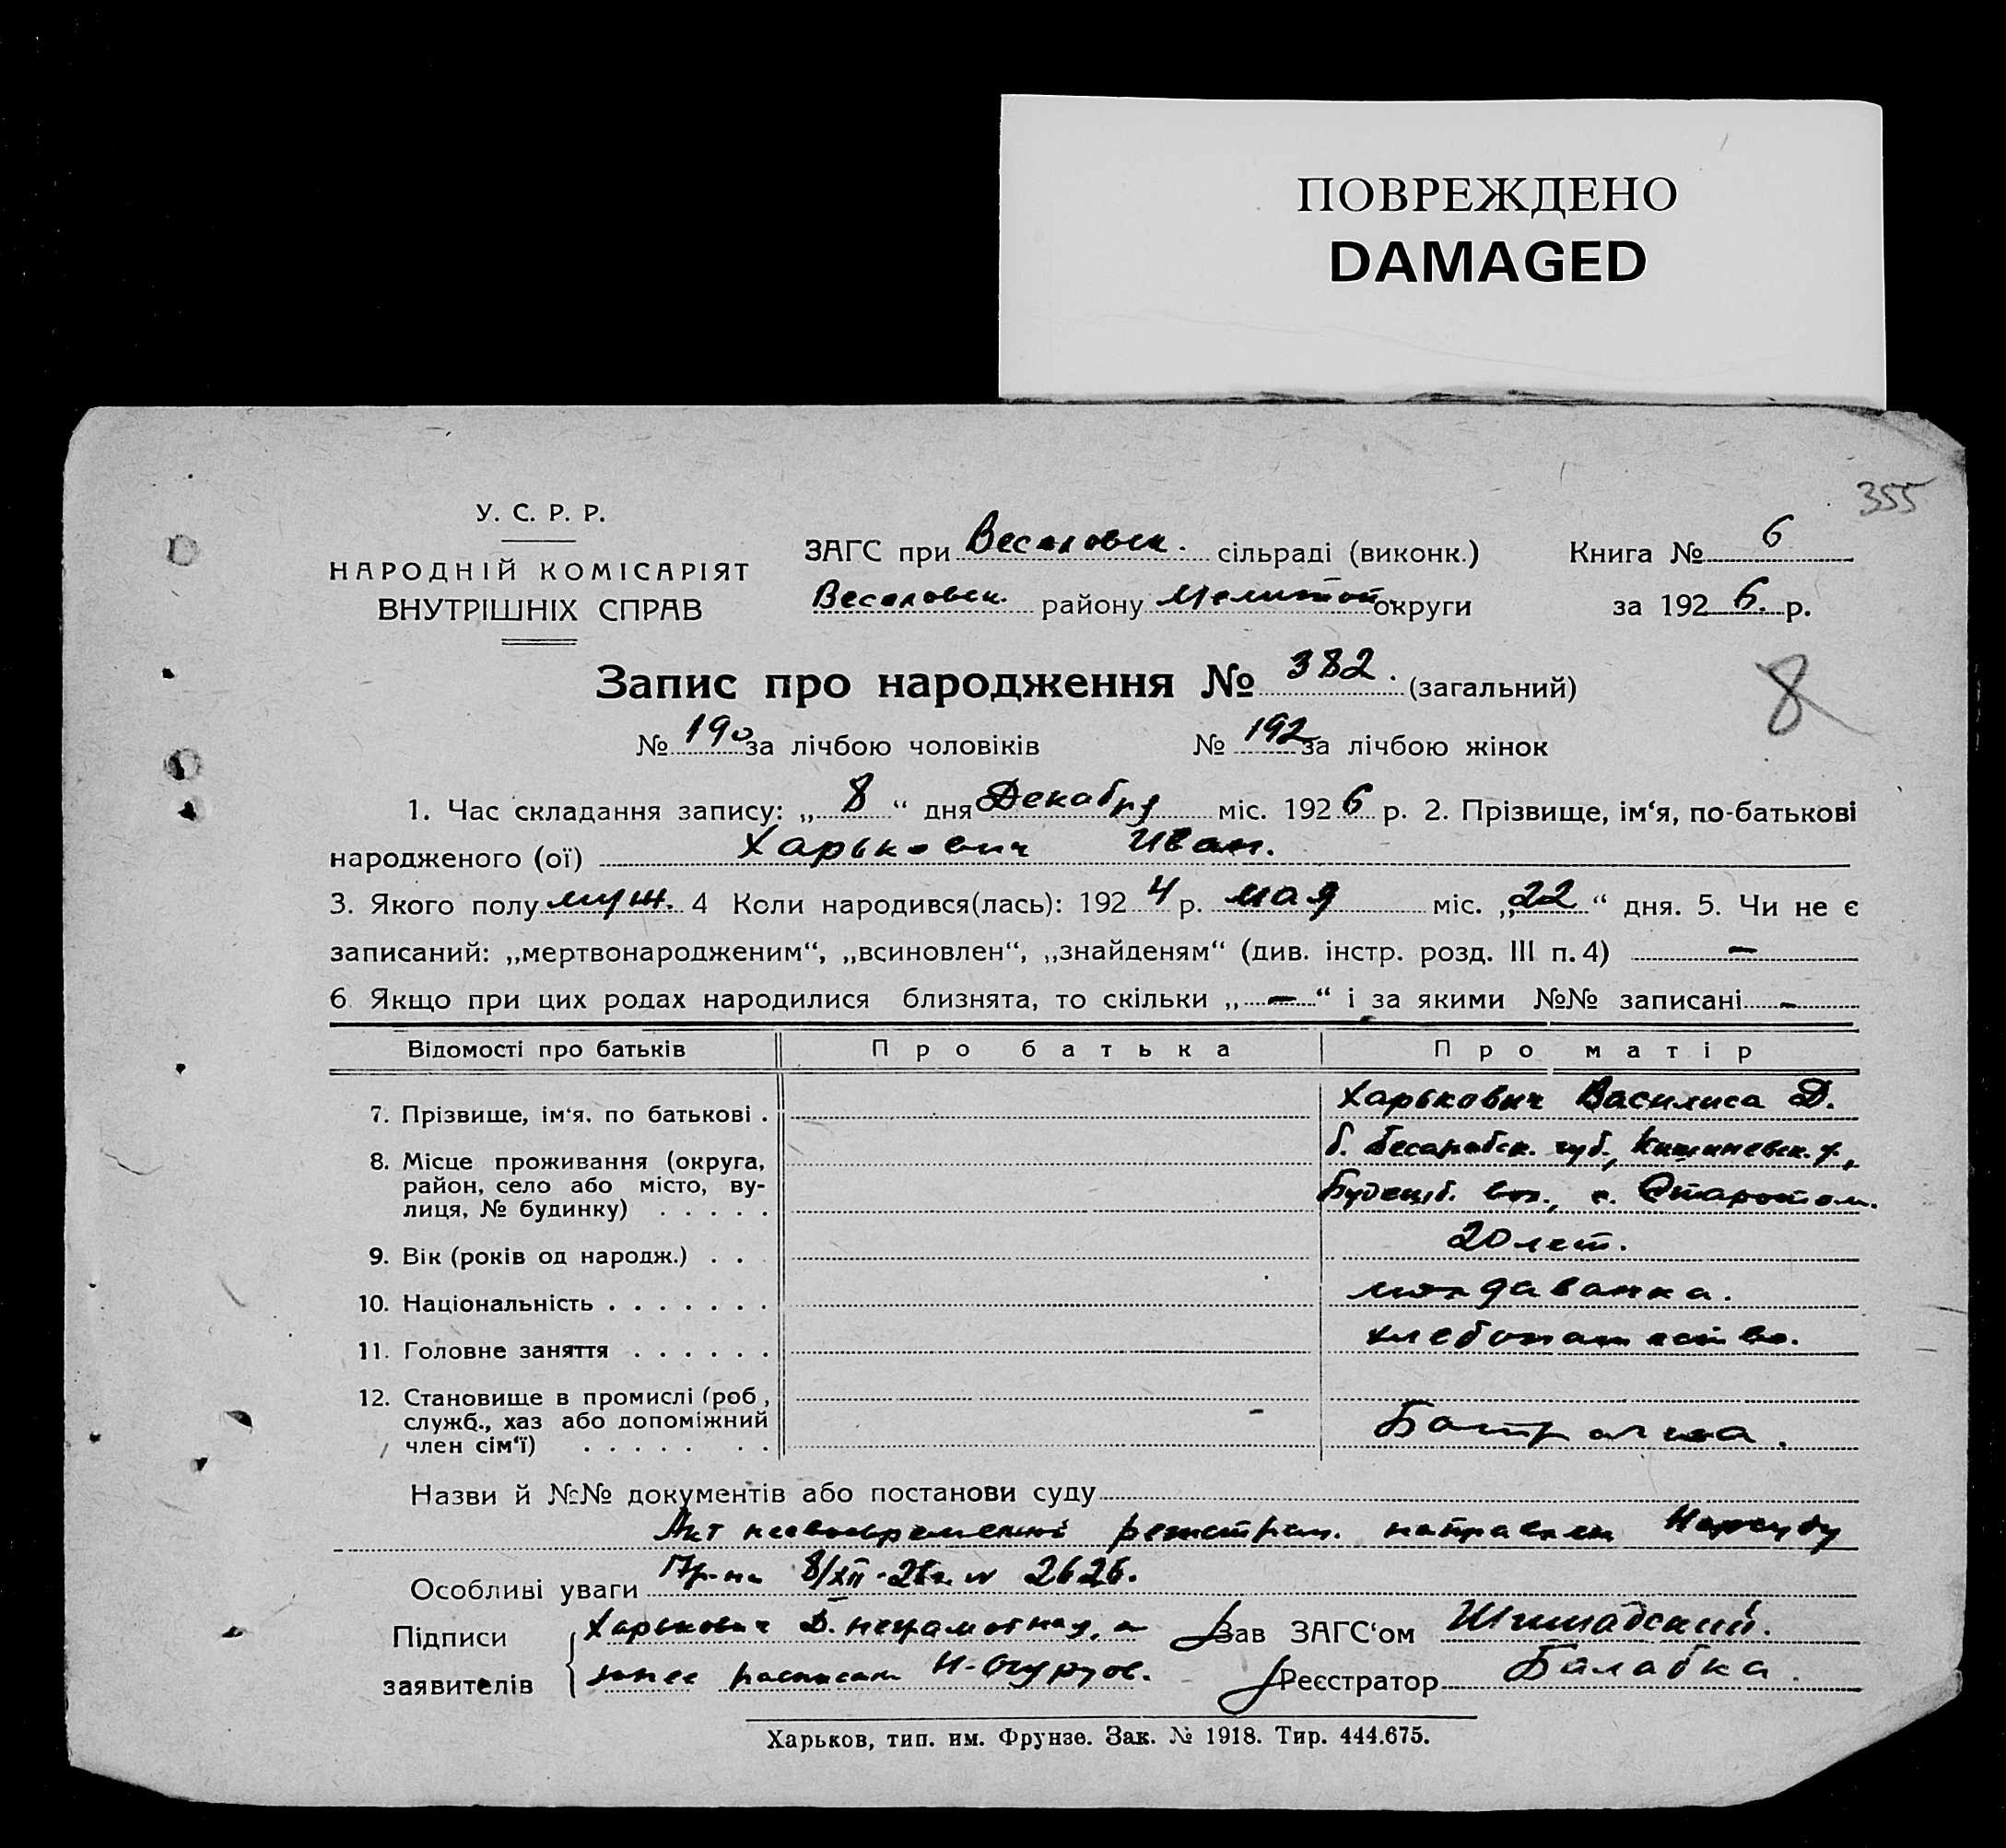 ПОВРЕЖДЕНО
DAMAGED
355
У. С. Р. Р.
НАРОДНІЙ КОМІСАРІЯТ
ВНУТРІШНІХ СПРАВ
ЗАГС при Веселовск. сільраді (виконк.) Книга № 6
Веселовск. району Мелитоп округи за 1926. р.
Запис про народження № 382. (загальний)
8
№ 190 за лічбою чоловіків № 192 за лічбою жінок
1. Час складання запису: „8“ дня Декабря міс. 1926 р. 2. Прізвище, ім‘я, по-батькові
народженого (ої) Харькович Иван.
3. Якого полу муж. 4 Коли народився(лась): 1924 р. мая міс. „22“ дня. 5. Чи не є
записаний: „мертвонародженим“, „всиновлен“, „знайденям“ (див. інстр. розд. III п. 4) —
6 Якщо при цих родах народилися близнята, то скільки „—“ і за якими №№ записані -
Відомості про батьків Про батька Про матір
7. Прізвище, ім‘я, по батькові . Харькович Василиса Д.
8. Місце проживання (округа, б. Бесарабск. губ., Кишиневск. у.,
район, село або місто, ву-
лиця, № будинку) . . . . . вол., с.
9. Вік (років од народж.) . . 20 лет.
10. Національність . . . . . . . молдаванка.
11. Головне заняття . . . . . . хлебопашество.
12. Становище в промислі (роб,
служб., хаз або допоміжний
член сім‘ї) . . . . . . . Батрачка.
Назви й №№ документів або постанови суду
Акт несвоевременной регистрац. направлен Нарсуду
Особливі уваги 8/XII-26г. № 2626.
Підписи Харькович В. неграмотная, а Зав ЗАГС‘ом
заявителів за нее расписал Н. Огурцов. Реєстратор Балабка.
Харьков, тип. им. Фрунзе. Зак. № 1918. Тир. 444.675.